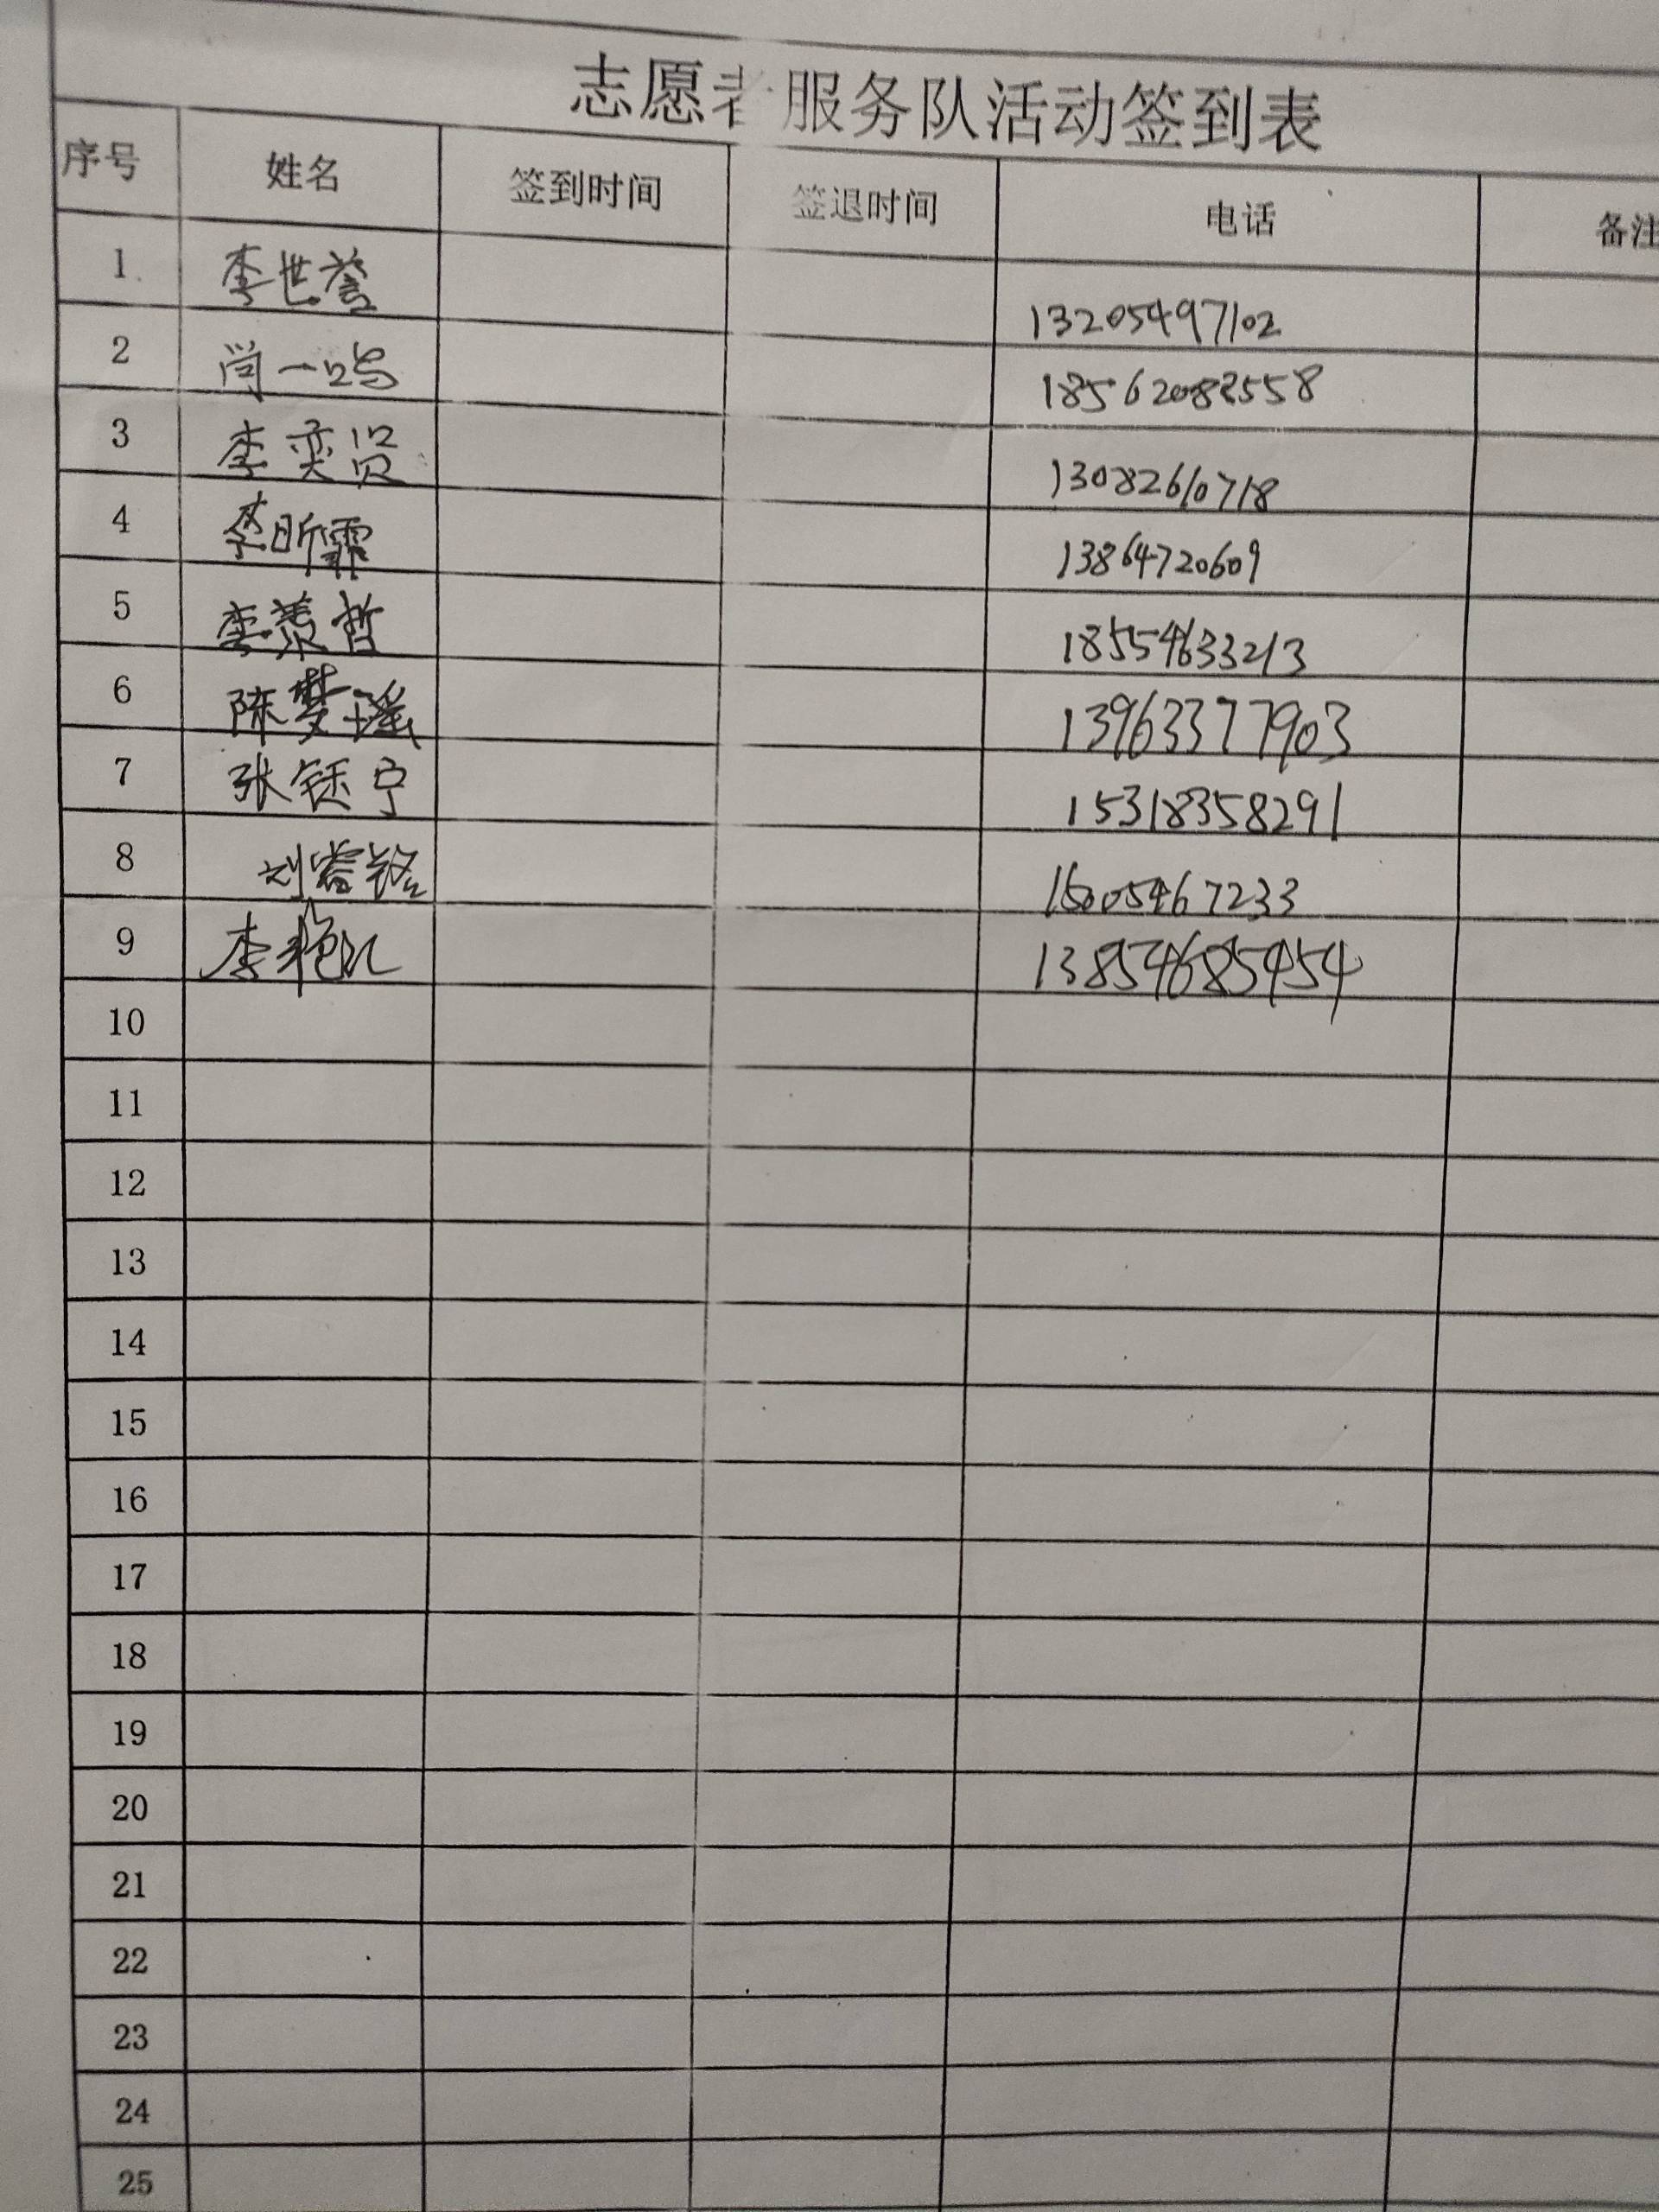 志愿者服务队活动签到表
序号 姓名 签到时间 签退时间 电话 备注
1 李世誉 13205497102
2 尚一鸣 18562082558
3 李奕贤 13082610718
4 李昕霏 13864720609
5 李羡哲 18554633213
6 陈梦瑶 13963377903
7 张钰宁 15318358291
8 刘睿铭 15005467233
9 李艳 13854685454
10
11
12
13
14
15
16
17
18
19
20
21
22
23
24
25